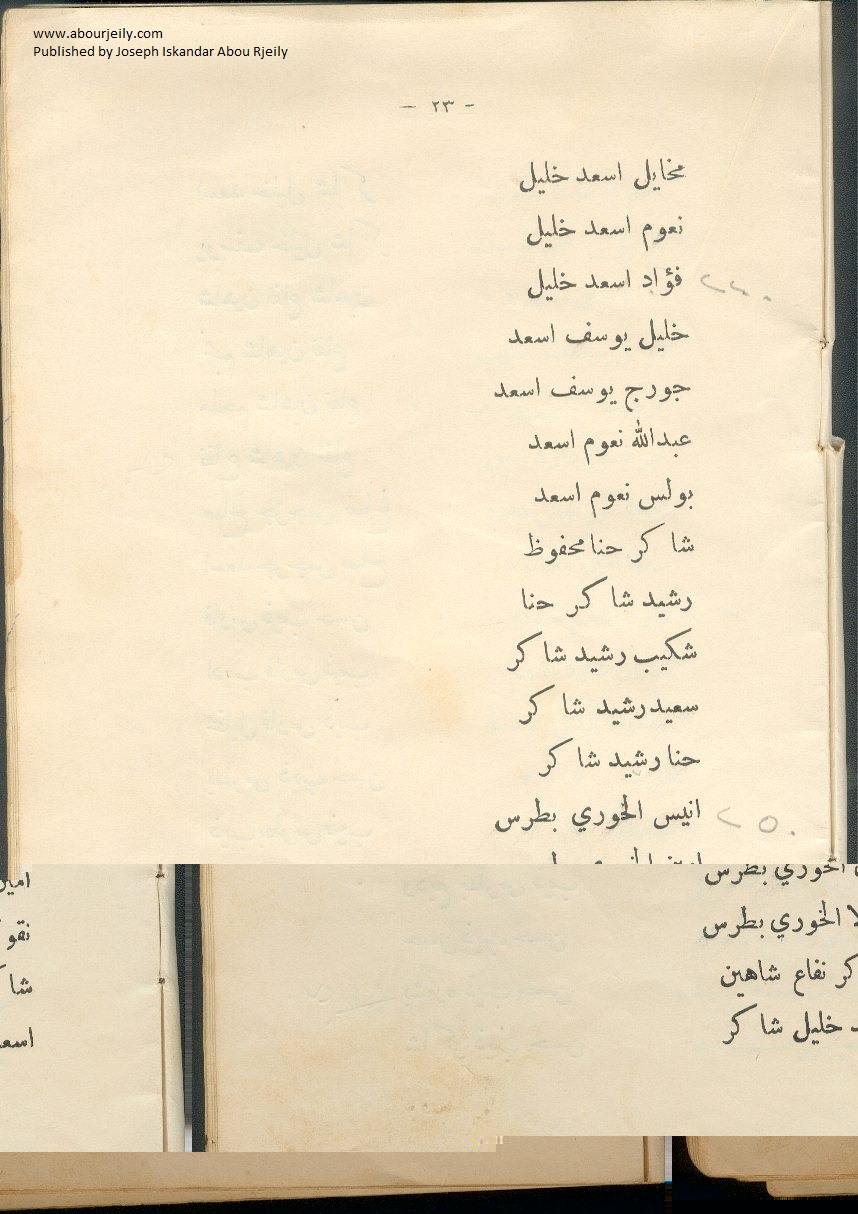 www.abourjeily.com
Published by Joseph Iskandar Abou Rjeily
- ٢٣ -
مخايل اسعد خليل
نعوم اسعد خليل
فؤاد اسعد خليل
خليل يوسف اسعد
جورج يوسف اسعد
عبدالله نعوم اسعد
بولس نعوم اسعد
شاكر حنا محفوظ
رشيد شاكر حنا
شكيب رشيد شاكر
سعيد رشيد شاكر
حنا رشيد شاكر
انيس الخوري بطرس
الخوري بطرس
الخوري بطرس
نفاع شاهين
خليل شاكر